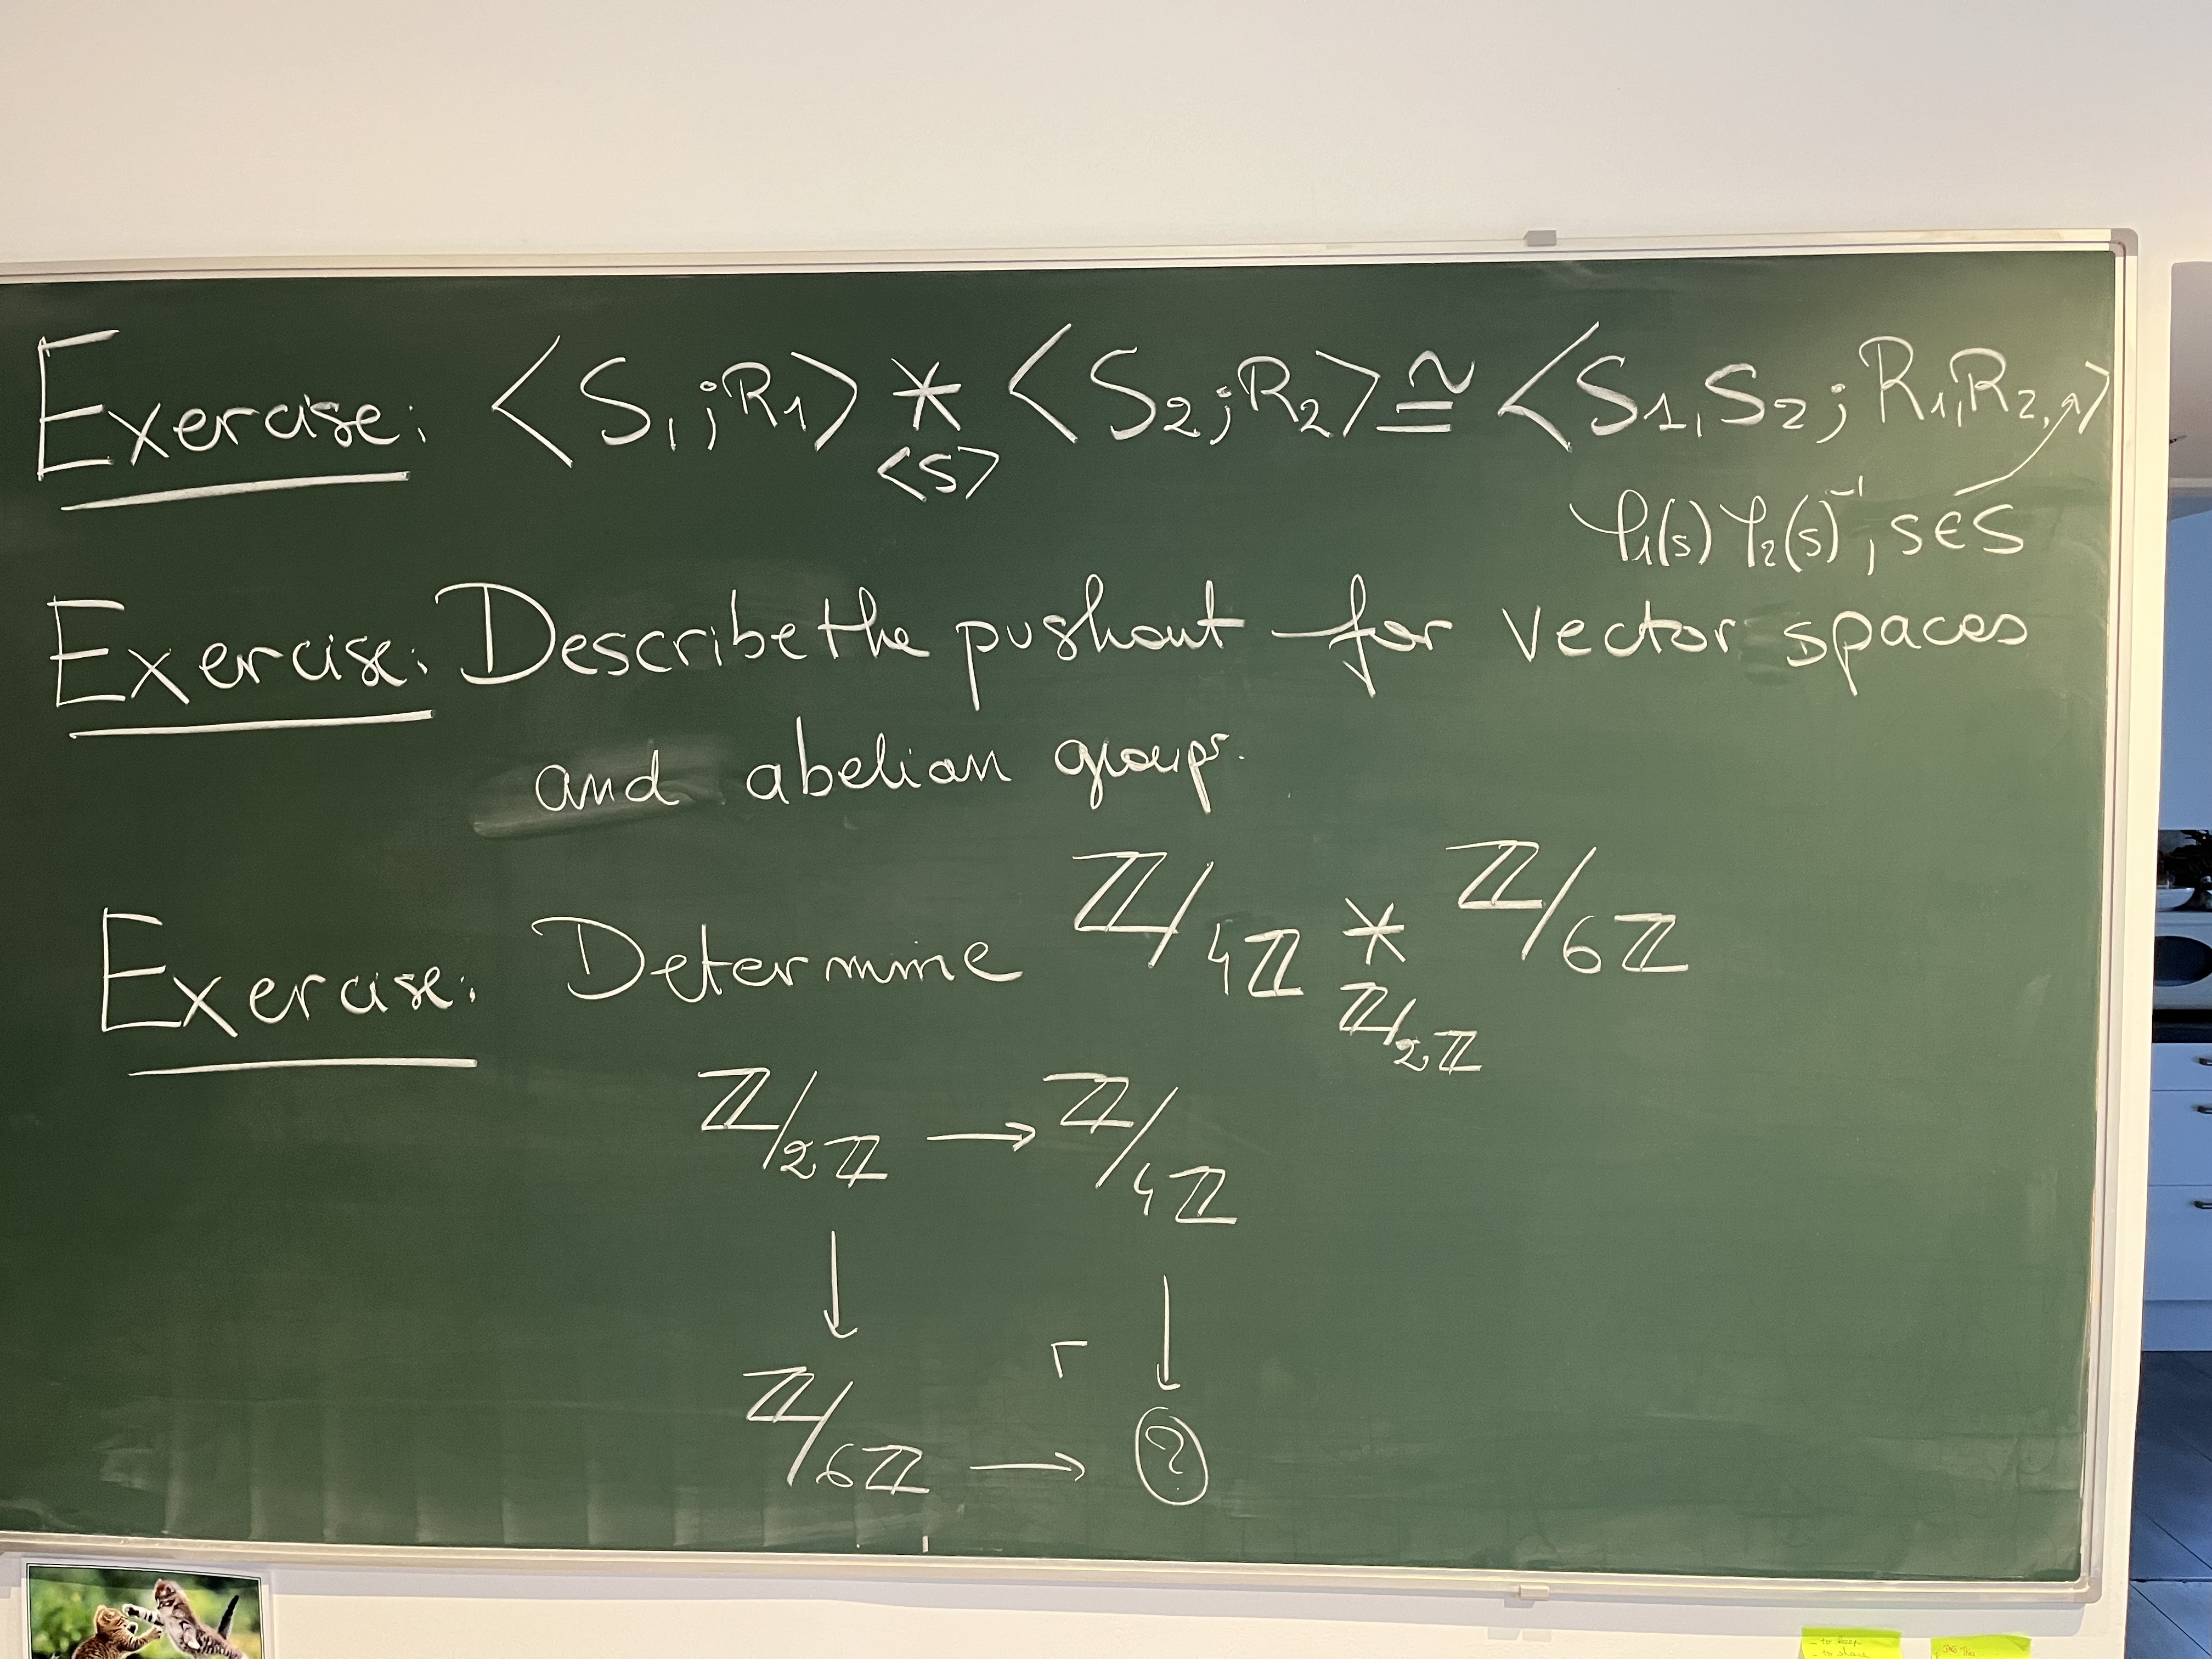 Exercise: <S₁;R₁> * <S₂;R₂> ≅ <S₁,S₂;R₁,R₂,↗>
<S>
φ₁(s)φ₂(s)⁻¹, s∈S
Exercise: Describe the pushout for vector spaces
and abelian groups.
Exercise: Determine ℤ/4ℤ * ℤ/6ℤ
ℤ/2ℤ
ℤ/2ℤ → ℤ/4ℤ
↓ ┌ ↓
ℤ/6ℤ → ?
- to keep
- to share